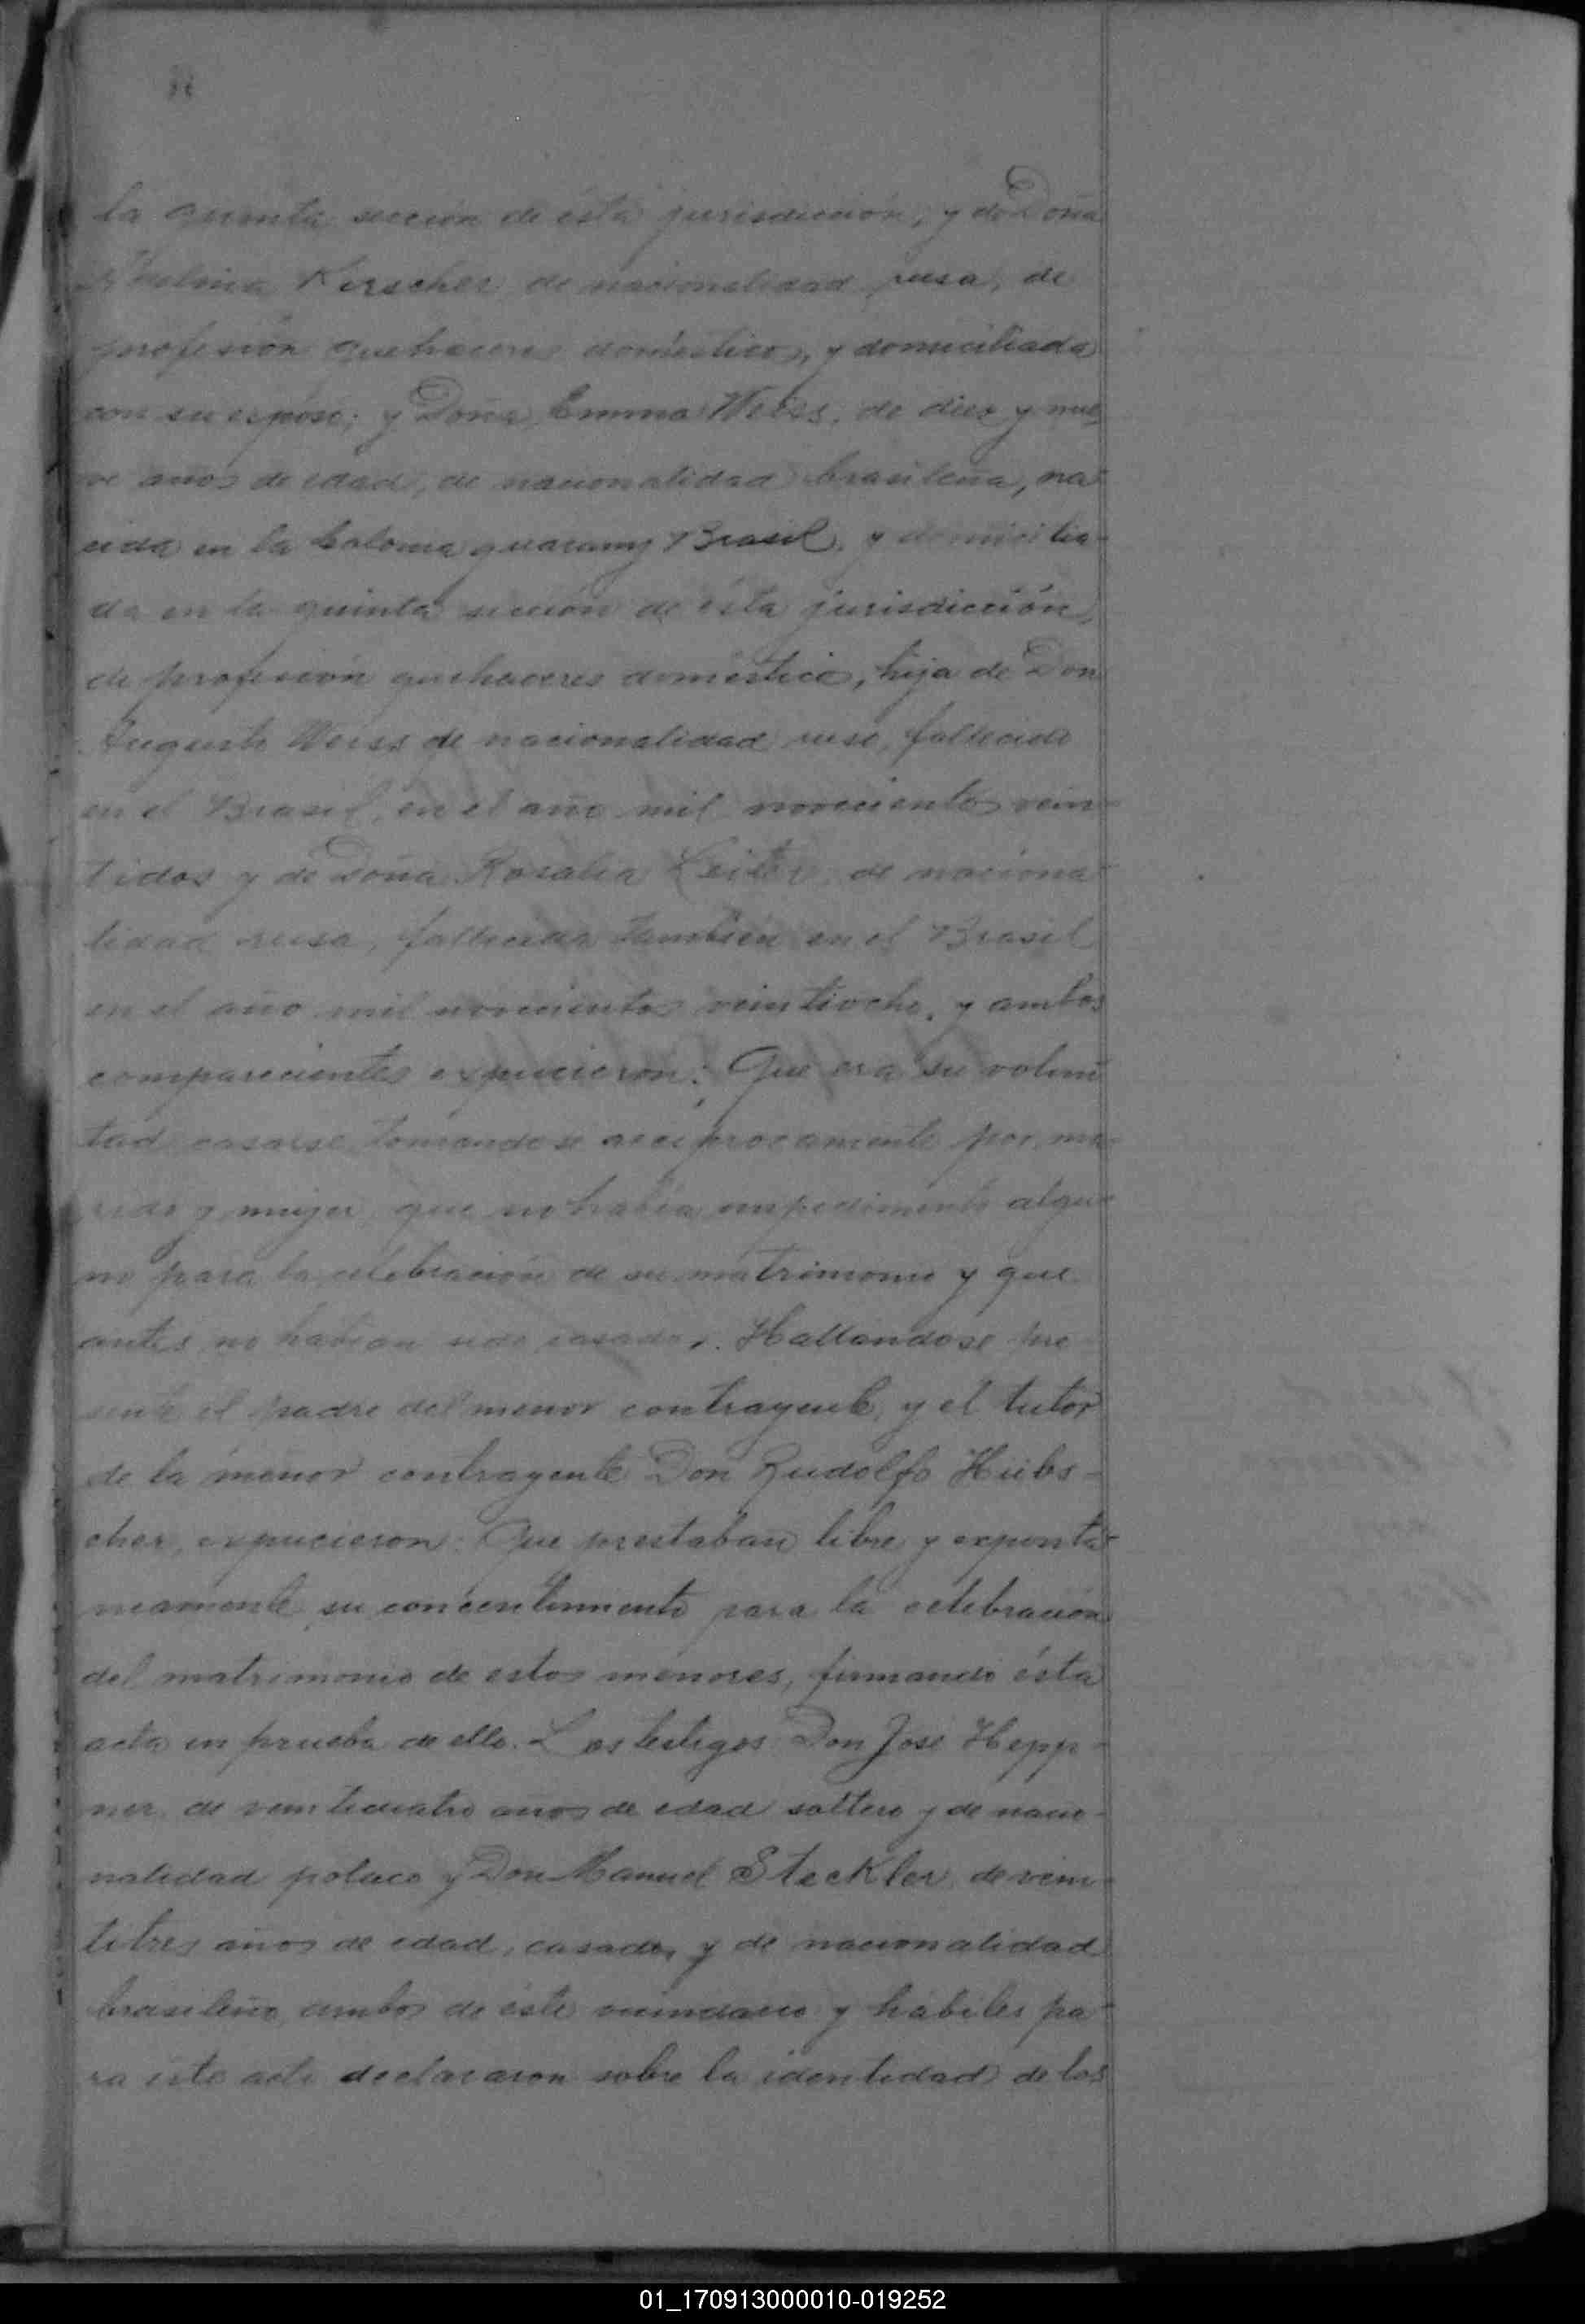 la quinta sección de ésta jurisdicción, y de Doña
Kerscher de nacionalidad rusa, de
profesión quehaceres domésticos, y domiciliada
con su esposo; y Doña Emma Weiss, de diez y nue-
ve años de edad, de nacionalidad brasileña, na-
cida en la Colonia guarany Brasil, y domicilia-
da en la quinta sección de ésta jurisdicción,
de profesión quehaceres domésticos, hija de Don
Augusto Weiss de nacionalidad ruso, fallecido
en el Brasil, en el año mil novecientos vein-
tidos y de Doña Rosalia Leiter, de naciona-
lidad rusa, fallecida también en el Brasil
en el año mil novecientos veintiocho, y ambos
comparecientes expucieron: Que era su volun-
tad casarse tomandose reciprocamente por ma-
rido y mujer, que no había impedimento algu-
no para la celebración de su matrimonio y que
antes no habían sido casados. Hallandose pre-
sente el padre del menor contrayente, y el tutor
de la menor contrayente Don Rudolfo Hübs-
cher, expucieron: Que prestaban libre y exponta-
neamente su concentimiento para la celebración
del matrimonio de estos menores, firmando ésta
acta en prueba de ello. Los testigos: Don José Hepp-
ner, de veinticuatro años de edad soltero y de nacio-
nalidad polaco y Don Manuel Steckler, de vein-
titres años de edad, casado, y de nacionalidad
brasileño, ambos de éste vecindario y hábiles pa-
ra este acto declararon sobre la identidad de los
01_170913000010-019252